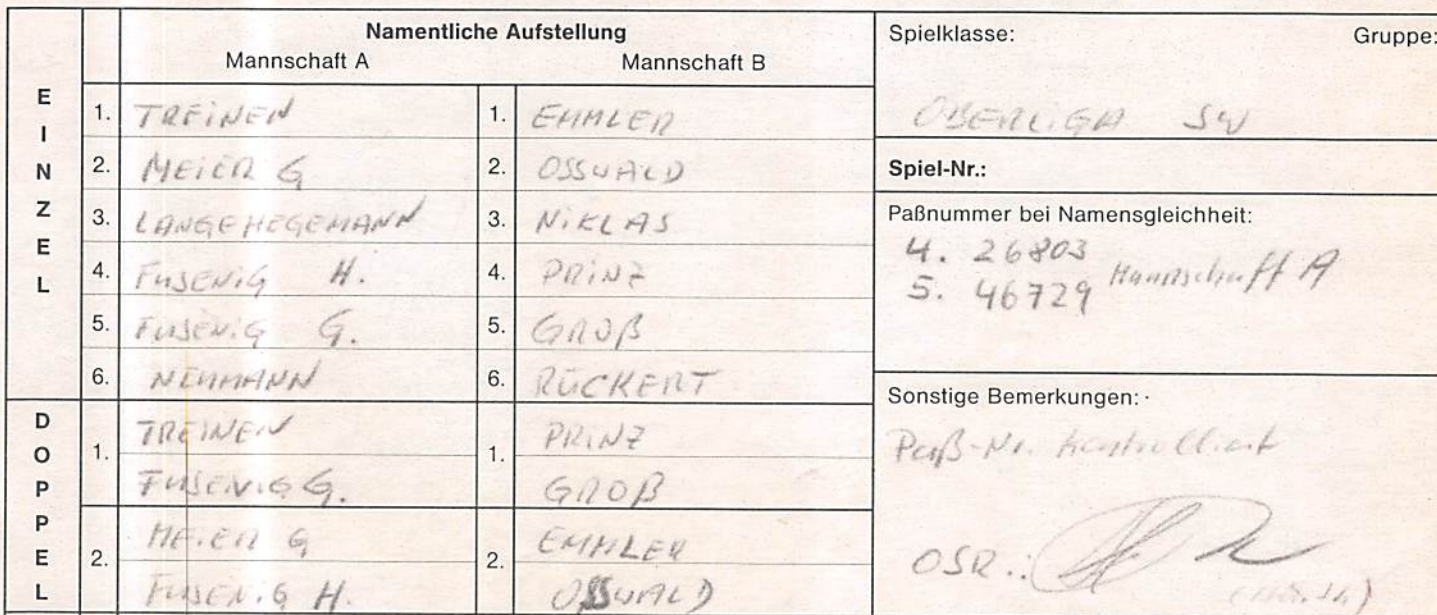 Namentliche Aufstellung
Mannschaft A Mannschaft B
EINZEL
1. TREINEN 1. EMMLER
2. MEIER G 2. OSSWALD
3. LANGEHEGEMANN 3. NIKLAS
4. FUSENIG H. 4. PRINZ
5. FUSENIG G. 5. GROß
6. NEUMANN 6. RÜCKERT
DOPPEL
1. TREINEN 1. PRINZ
FUSENIG G. GROß
2. MEIER G 2. EMMLER
FUSENIG H. OSSWALD
Spielklasse: Gruppe:
OBERLIGA SW
Spiel-Nr.:
Paßnummer bei Namensgleichheit:
4. 26803
5. 46729 Mannschaft A
Sonstige Bemerkungen:
Paß-Nr. kontrolliert
OSR.: